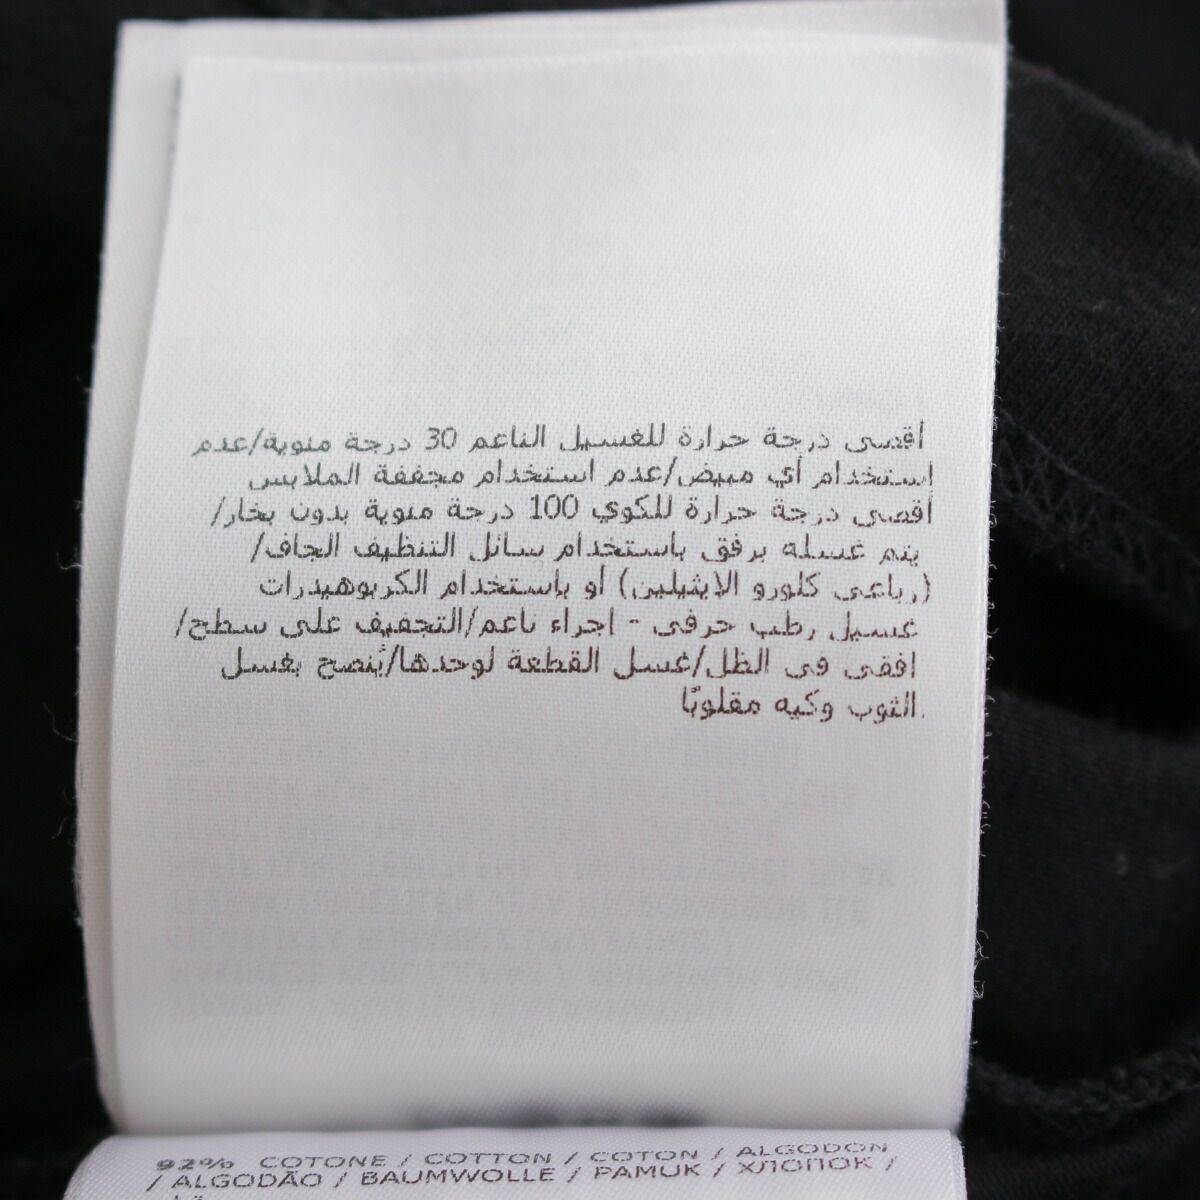 أقصى درجة حرارة للغسيل الناعم 30 درجة مئوية/عدم
استخدام أي مبيض/عدم استخدام مجففة الملابس
أقصى درجة حرارة للكوي 100 درجة مئوية بدون بخار/
يتم غسله برفق باستخدام سائل التنظيف الجاف/
(رباعي كلورو الايثيلين) أو باستخدام الكربوهيدرات
غسيل رطب حرفي - اجراء ناعم/التجفيف على سطح/
افقي في الظل/غسل القطعة لوحدها/يُنصح بغسل
الثوب وكيه مقلوبًا.
92% COTONE / COTTON / COTON / ALGODON
/ ALGODÃO / BAUMWOLLE / PAMUK / ХЛОПОК /